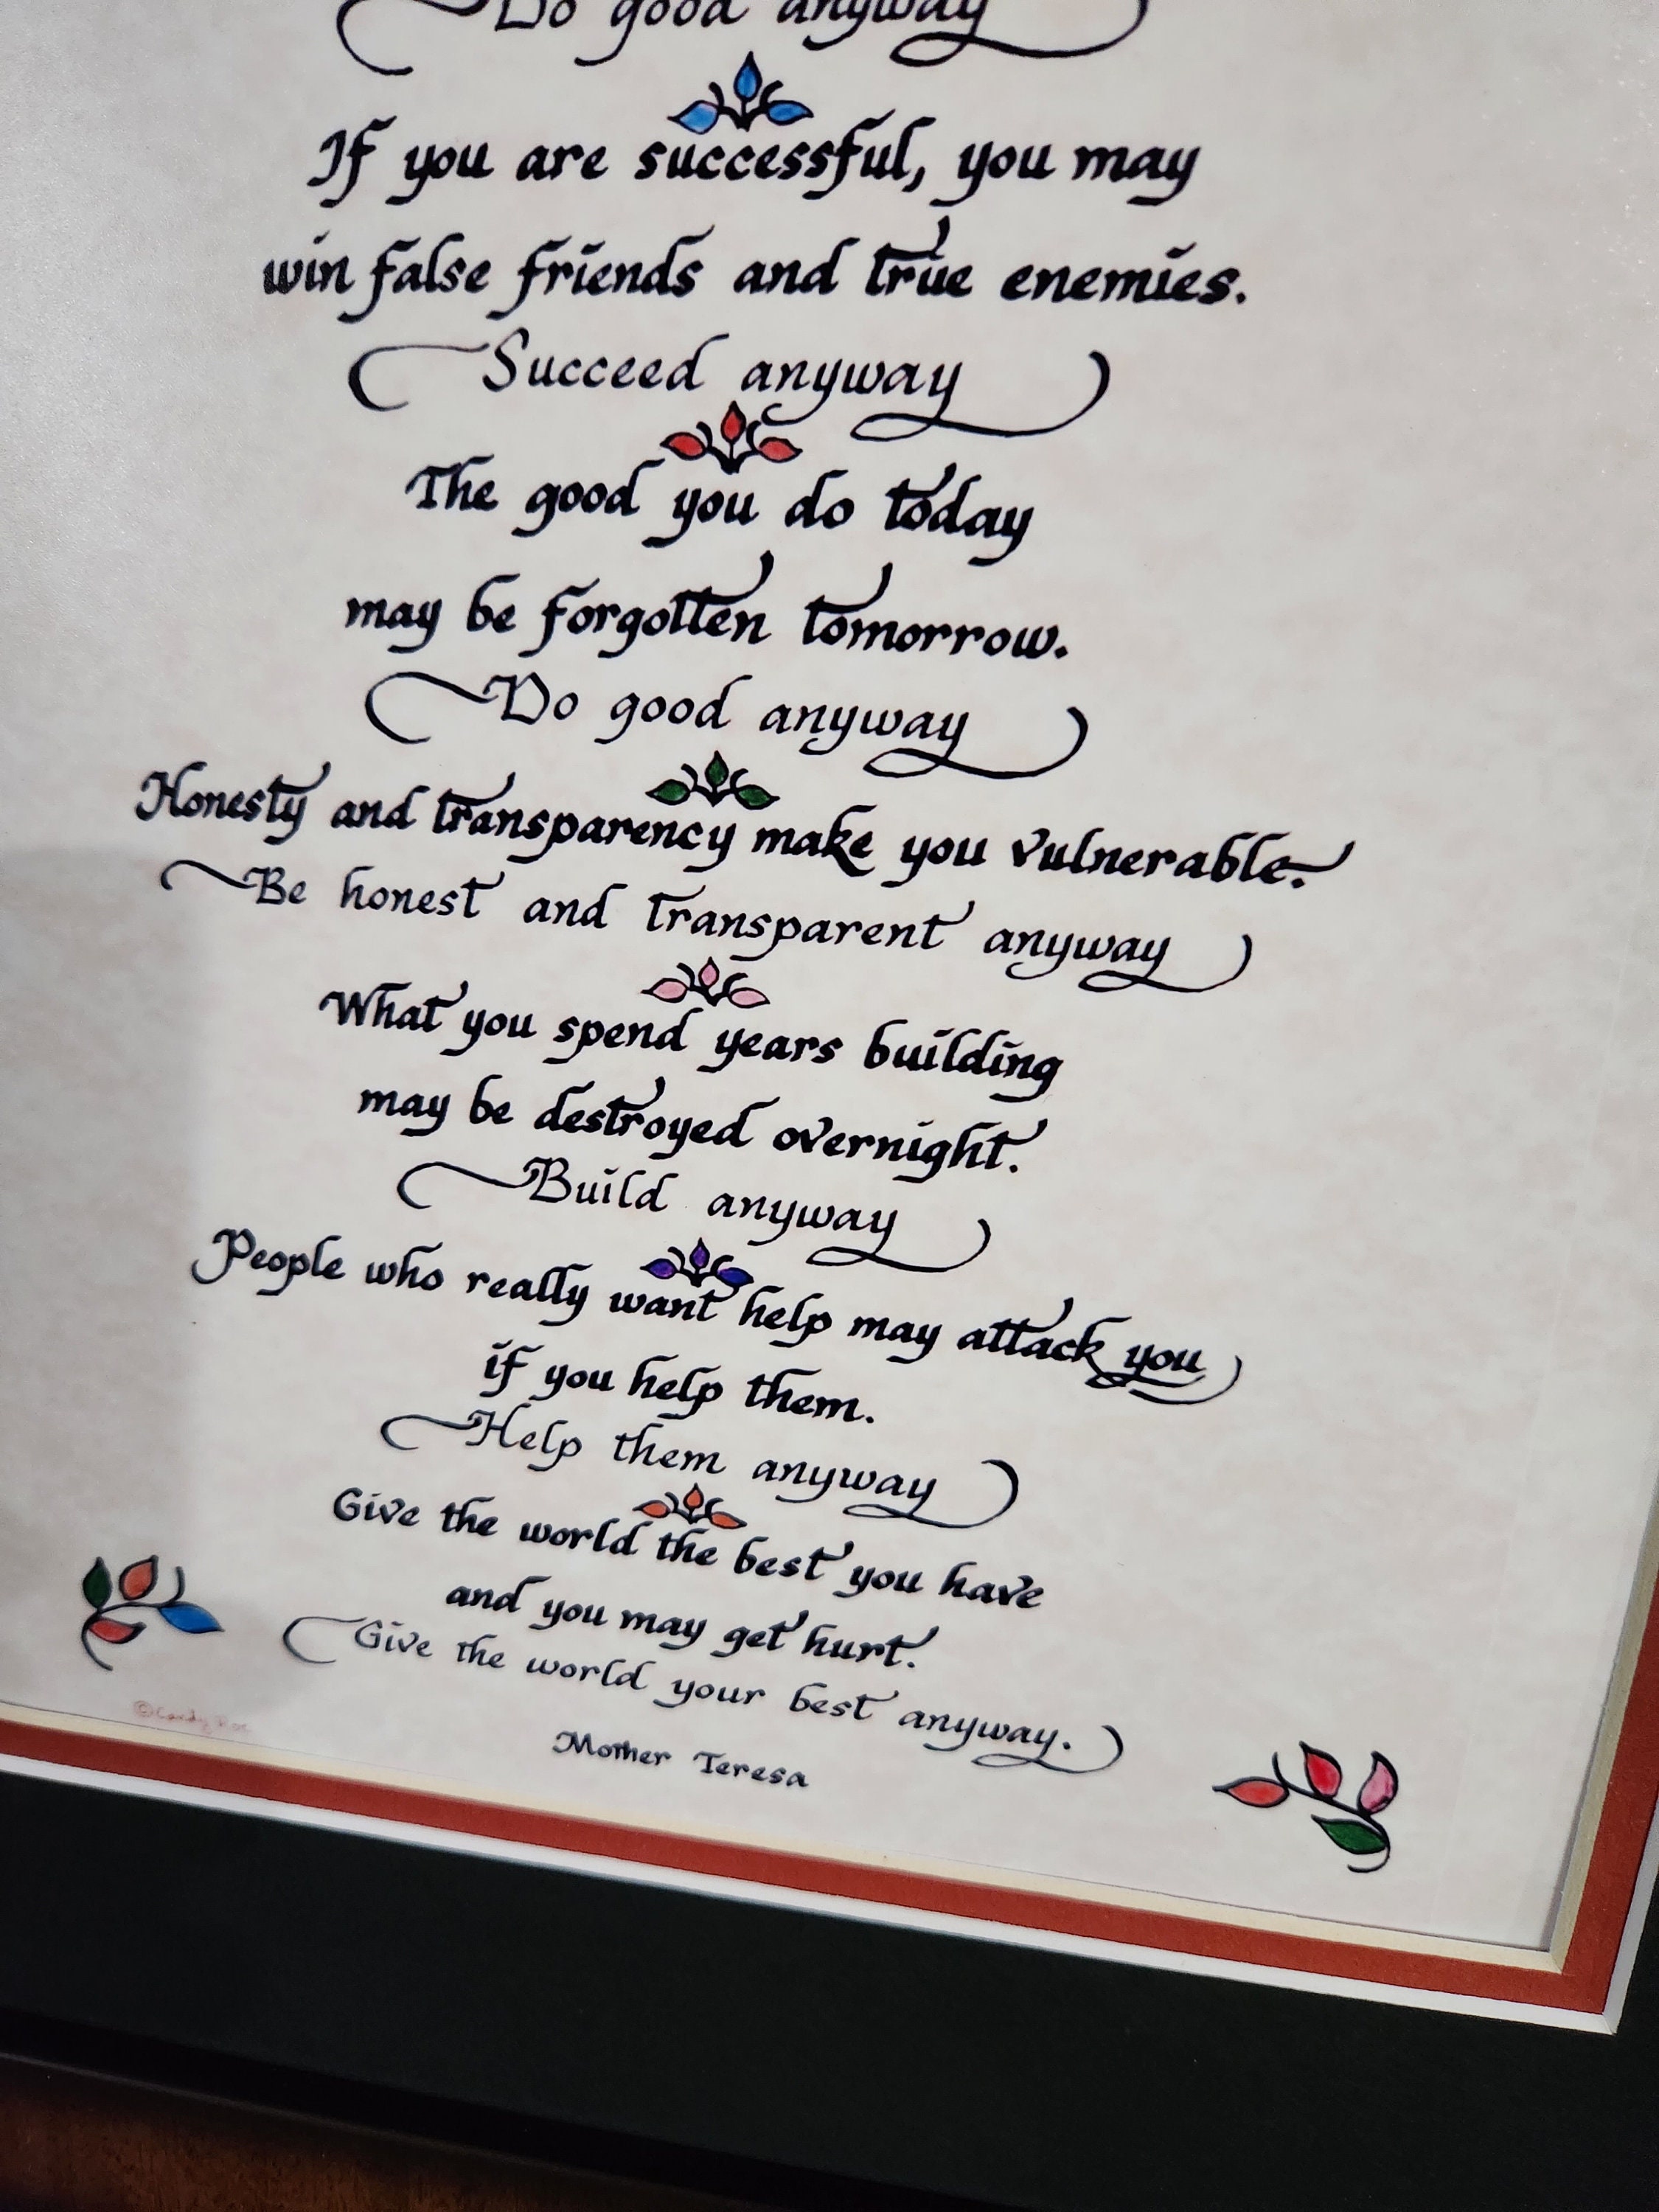 Do good anyway
If you are successful, you may
win false friends and true enemies.
Succeed anyway
The good you do today
may be forgotten tomorrow.
Do good anyway
Honesty and transparency make you vulnerable.
Be honest and transparent anyway
What you spend years building
may be destroyed overnight.
Build anyway
People who really want help may attack you
if you help them.
Help them anyway
Give the world the best you have
and you may get hurt.
Give the world your best anyway.
Mother Teresa